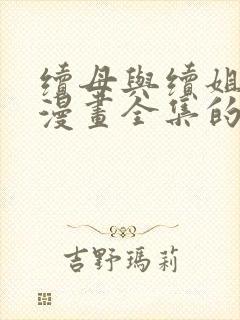 續母與續姐
漫畫全集的
吉野瑪莉